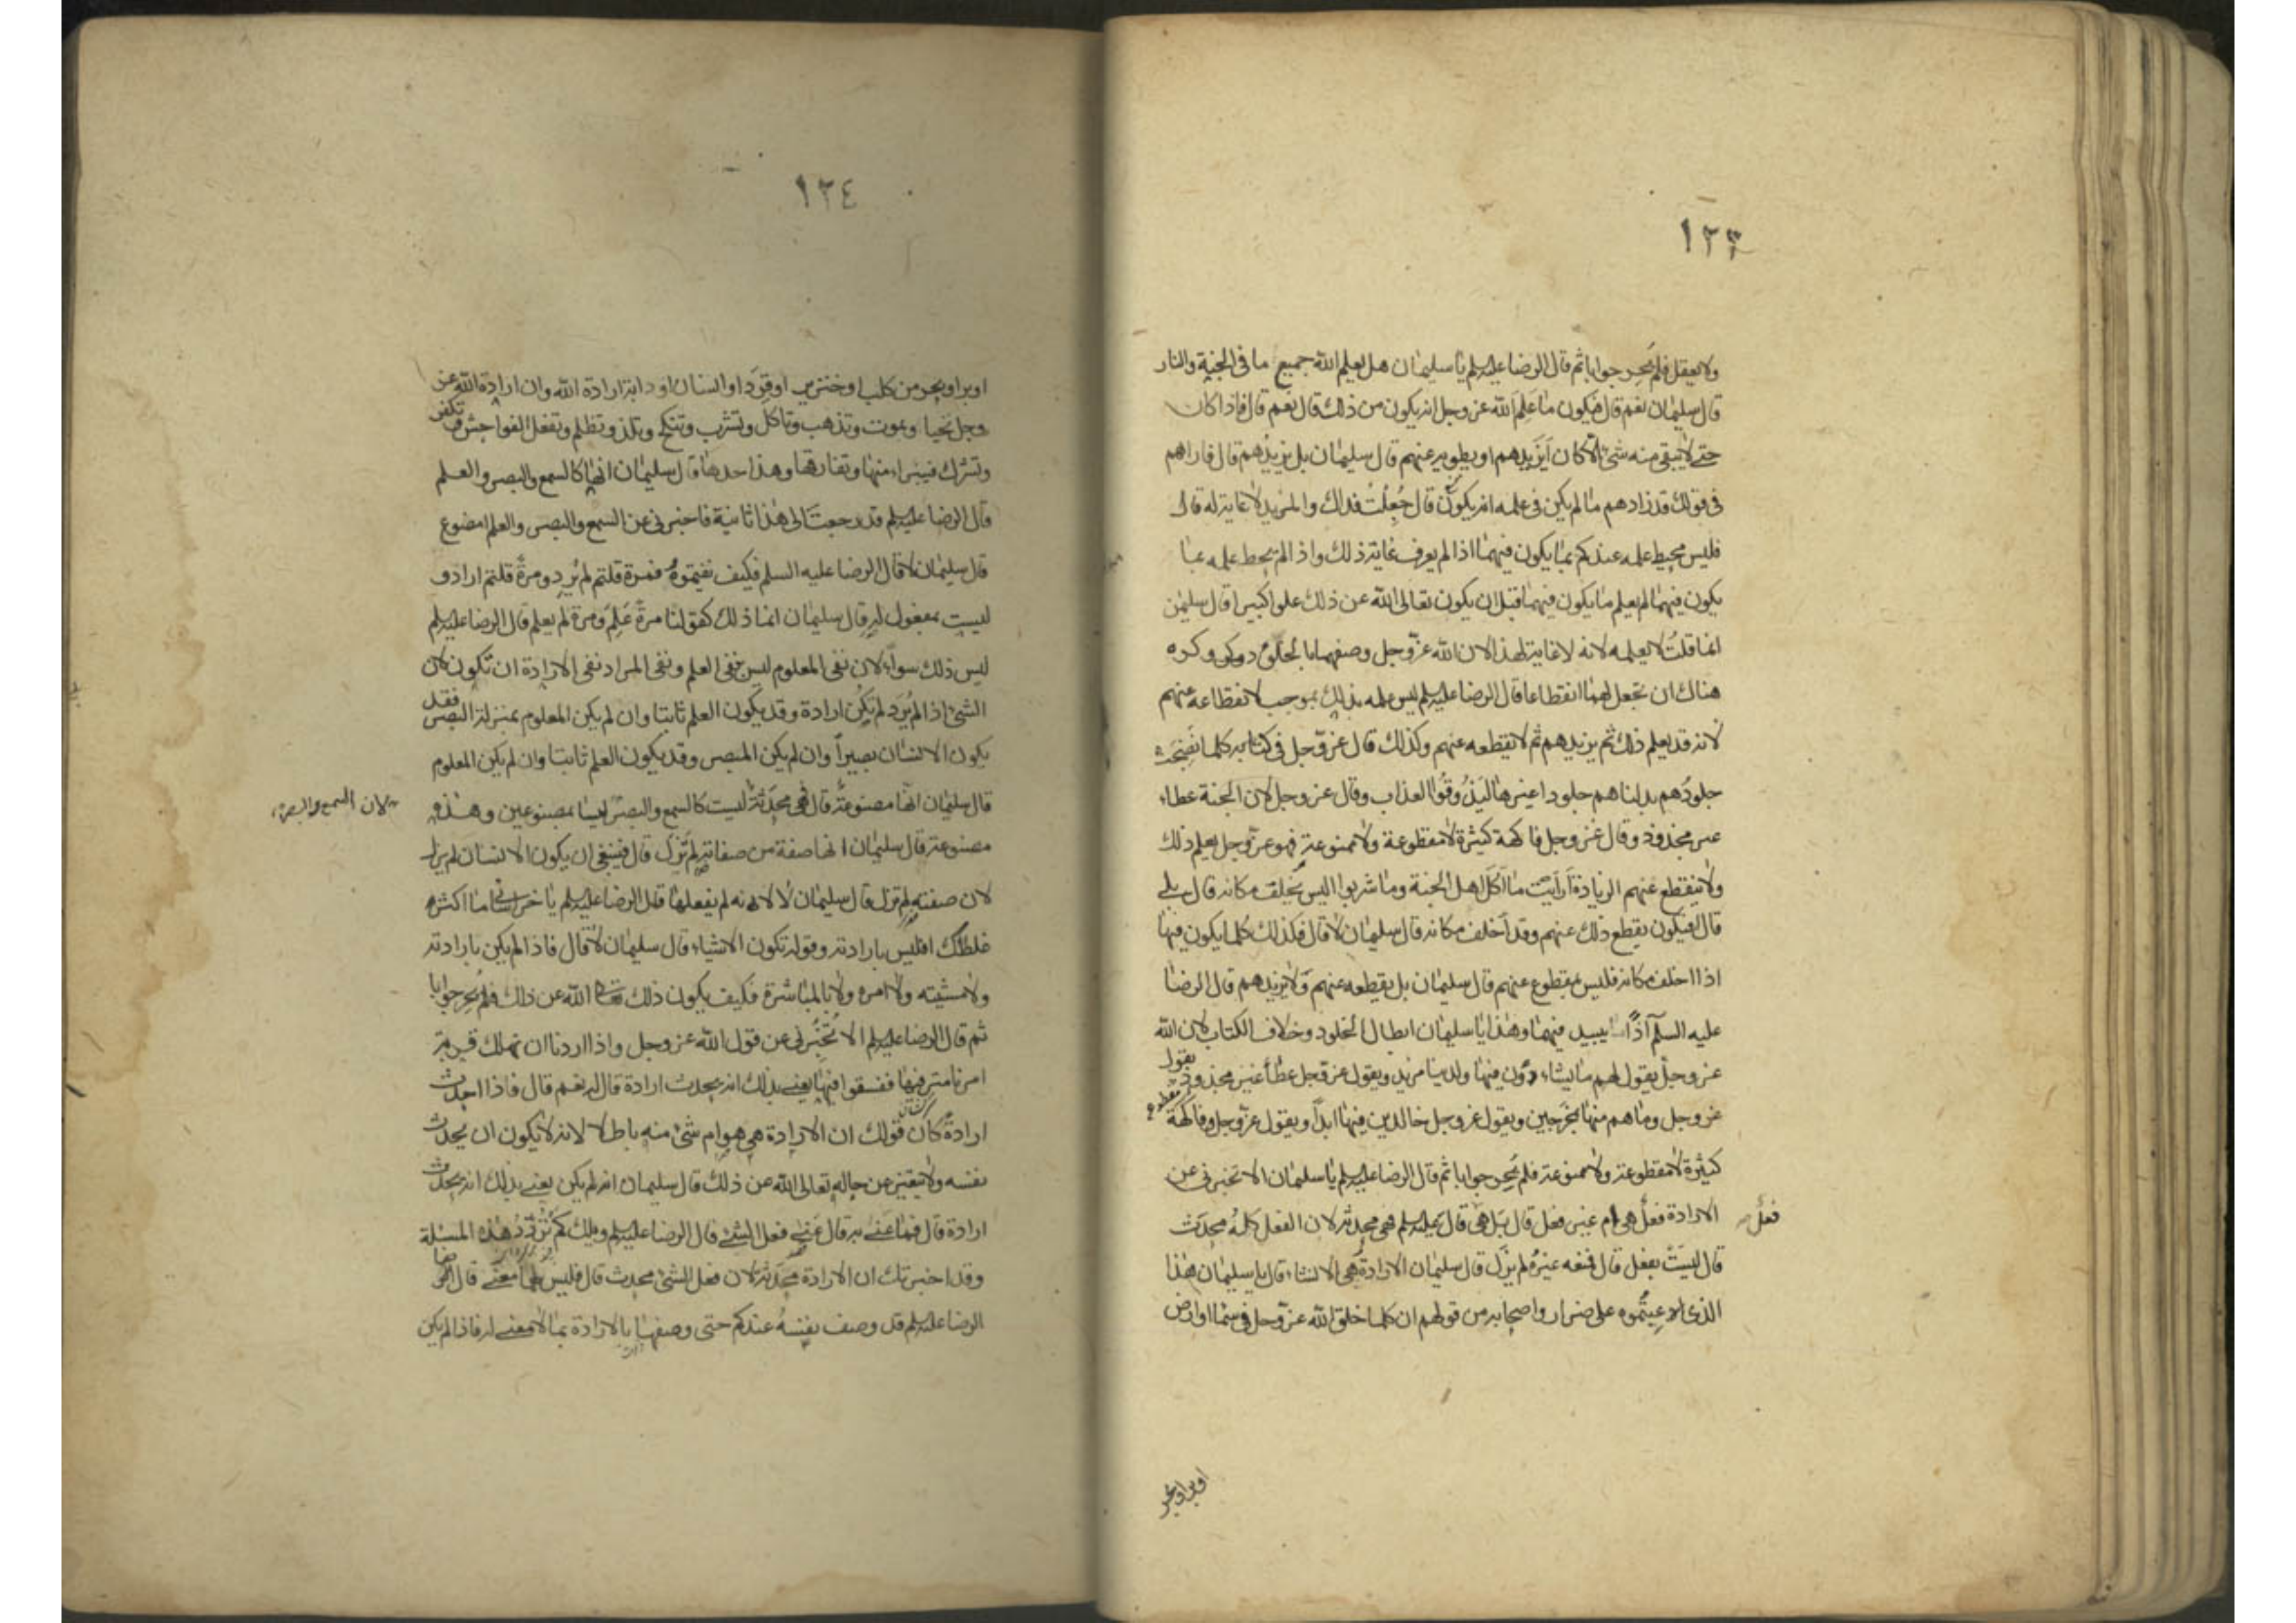 ١٢٣
ولا يعقل فلم يُحِر جوابا ثم قال الرضا عليه السلم يا سليمان هل يعلم الله جميع ما فى الجنة والنار
قال سليمان نعم قال فيكون ما عَلِمَ الله عز وجل انه يكون من ذلك قال نعم قال فاذا كان
حتے لا يبقى منه شئ الا كان اَيَزيدهم او يطويه عنهم قال سليمان بل يزيدُهم قال فاراهم
فى قولك قد زادهم ما لم يكن فى علمه انه يكون قال جُعِلْتُ فداك والمزيد لا غاية له قال
فليس محيط علمه عندكم بما يكون فيهما اذا لم يعرف غاية ذلك واذا لم يحط علمه بما
يكون فيهما لم يعلم ما يكون فيهما قبل ان يكون تعالى الله عن ذلك علوا كبيرا قال سليمن
انما قلتُ لا يعلمه لانه لا غاية لهذا لان الله عزّ وجل وصفهما بالخلود وكره
هناك ان تجعل لهما انقطاعا قال الرضا عليه السلم ليس علمه بذلك بموجب لانقطاعه عنهم
لانه قد يعلم ذلك ثم يزيدهم ثم لا يقطعه عنهم وكذلك قال عزّ وجل فى كتابه كلما نَضِجَت
جلودُهم بدلناهم جلودا غيرها لِيَذُوقُوا العذاب وقال عز وجل لاهل الجنة عطاء
غير مجذوذ وقال عز وجل فاكهة كثيرة لا مقطوعة ولا ممنوعة فهو عزّ وجل يعلم ذلك
ولا يقطع عنهم الزيادة اَرَاَيْتَ ما اكَلَ اهل الجنة وما شربوا اليس يُخلف مكانه قال بلے
قال افيكون يقطع ذلك عنهم وقد اَخلف مكانه قال سليمان لا قال فكذلك كلما يكون فيها
اذا اخلف مكانه فليس بمقطوع عنهم قال سليمان بل يقطعه عنهم وَلا يزيدهم قال الرضا
عليه السلم اذًا يبيد فيهما وهذا يا سليمان ابطال الخلود وخلاف الكتاب لان الله
عز وجلّ يقول لهم ما يشاءون فيها ولدينا مزيد ويقول عزّ وجل عطاءً غير مجذوذ ويقول
عز وجل وما هم منها بمُخرَجين ويقول عز وجل خالدين فيها ابداً ويقول عزّ وجل وفاكهة
كثيرة لا مقطوعة ولا ممنوعة فلم يُحِر جوابا ثم قال الرضا عليه السلم يا سليمان الا تخبرنى عن
الارادة فعلٌ هى ام غير فعل قال بَل هى قال عليه السلم فهى محدثة لان الفعل كلهُ محدَث
فعل
قال ليسَتْ بفعل قال فمعه غيرُه لم يزَل قال سليمان الارادة هى الانشاء قال يا سليمان هٰذا
الذى ادعيتُموه على ضرار واصحابه من قولهم ان كلما خلق الله عزّ وجل فى سماء او ارض
او بر او بحر
١٢٤
او بر او بحر من كلب او خنزير او قِرَد او انسان او دابة ارادة الله وان ارادة الله عز
وجل تحيا وتموت وتذهب وتاكل وتشرب وتنكح وتلذ وتظلم وتفعل الفواحش وتكفر
وتشرك فيبراء منها وتفارقها وهذا حدها قال سليمان انها كالسمع والبصر والعلم
قال الرضا عليه السلم قد رجعتَ الى هٰذا ثانية فاخبرنى عن السمع والبصر والعلم امصنوع
قال سليمان لا قال الرضا عليه السلم فكيف نفيتموهُ فمرة قلتم لم يُرد ومرةً قلتم اراد و
ليست بمفعول له قال سليمان انما ذلك كقولنا مرةً عَلِمَ ومرة لم يعلم قال الرضا عليه السلم
ليس ذلك سواءً لان نفى المعلوم ليس بنفى العلم ونفى المراد نفى الارادة ان تكون لان
الشئ اذا لم يُرَد لم تكُن ارادة وقد يكون العلم ثابتا وان لم يكن المعلوم بمنزلة البصر فقد
يكون الانسان بصيراً وان لم يكن المبصر وقد يكون العلم ثابتا وان لم يكن المعلوم
قال سليمان انّها مصنوعةٌ قال فهى محدَثةٌ ليست كالسمع والبصر ليسا بمصنوعين وهذه
لان السمع والبصر
مصنوعة قال سليمان انها صفة من صفاته لم تزَل قال فينبغى ان يكون الانسان لم يزل
لان صفته لم تزل قال سليمان لا لانه لم يفعلها قال الرضا عليه السلم يا خراسانى ما اكثر
غلطك افليس بارادته وقوله تكون الاشياء قال سليمان لا قال فاذا لم يكن بارادته
ولا مشيته ولا امره ولا بالمباشرة فكيف يكون ذلك تعالى الله عن ذلك فلم يُحِر جوابا
ثم قال الرضا عليه السلم الا تُخبِّرنى عن قول الله عز وجل واذا اردنا ان نهلك قرية
امرنا مترفيها ففسقوا فيها يعنے بذلك انه يحدث ارادة قال له نعم قال فاذا احدث
ارادةً كان قولك ان الارادة هى هو ام شئ منه باطلا لانه لا يكون ان يحدث
نفسه ولا يتغير عن حاله تعالى الله عن ذلك قال سليمان انه لم يكن يعنے بذلك انه يحدث
ارادة قال فما عَنَے به قال عَنے فعل الشئ قال الرضا عليه السلم ويلك كم تُردِّدُ هٰذه المسئلة
وقد اخبرتك ان الارادة محدَثة لان فعل الشئ محدث قال فليس لها معنے قال
الرضا عليه السلم قد وصف نفسهُ عندكم حتى وصفها بالارادة بما لا معنے له فاذا لم يكن